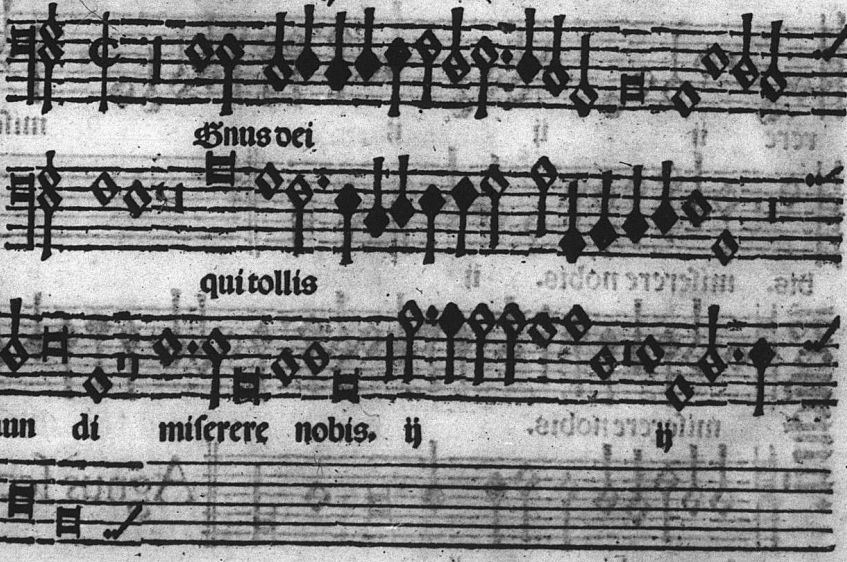 Gnus dei
qui tollis
mun di miserere nobis. ij ij